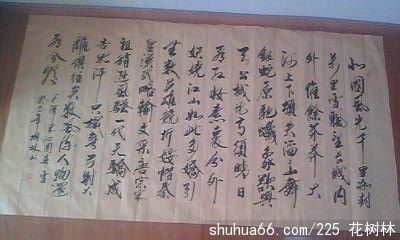 北國風光千里冰封
万里雪飄望长城内
外惟餘莽莽大
河上下顿失滔滔山舞
銀蛇原驰蠟象欲與
天公試比高須晴日
看红妝素裹分外
妖嬈江山如此多嬌引
无数英雄竞折腰惜秦
皇漢武略輸文采唐宗宋
祖稍遜風騷一代天驕成
吉思汗只識弯弓射大
雕俱往矣数風流人物還
看今朝
毛澤東沁園春雪
shuhua66.com/225 花树林